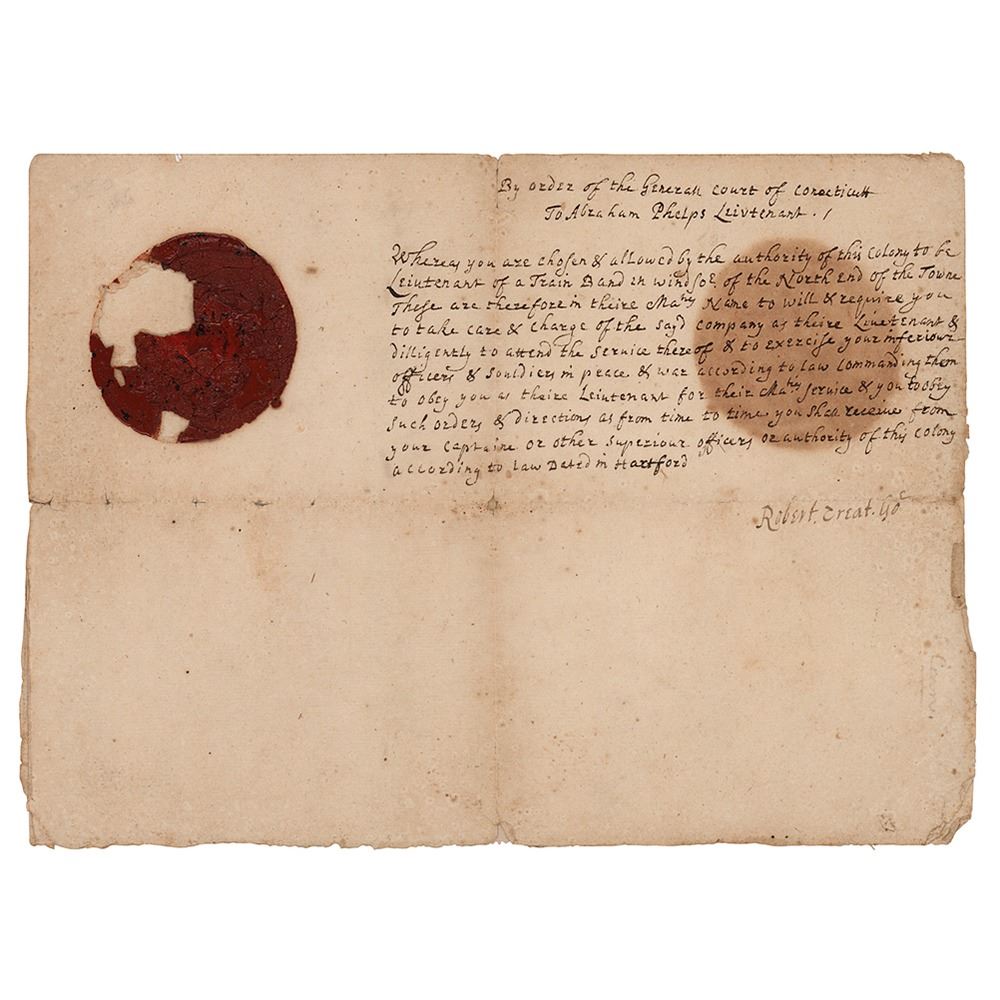 By order of the Generall Court of Conecticutt
To Abraham Phelps Leivtenant . /
Whereas you are chosen & allowed by the authority of this Colony to be
Leiutenant of a Train Band in windsor of the North End of the Towne
These are therefore in theire Maties Name to will & require you
to take care & Charge of the sayd company as theire Lieutenant &
dilligently to attend the Service thereof & to exercise your inferiour
officers & souldiers in peace & war according to law commanding them
to obey you as theire Leiutenant for their Maties Service & you to obey
such orders & directions as from time to time you shall receive from
your Captaine or other superiour officers or authority of this Colony
according to law Dated in Hartford
Robert Treat Gor